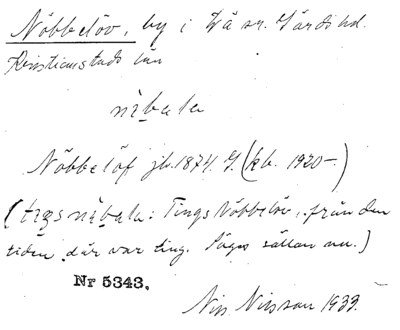 Nöbbelöv, by i Vä sn. Gärds hd.
Kristianstads län
nìbala
Nöbbelöf jb. 1874. G. (kb. 1920-)
(tiŋsnìbala: Tings Nöbbelöv, från den
tiden där var ting. Säges sällan nu.)
Nr 5343.
Nils Nilsson 1933.